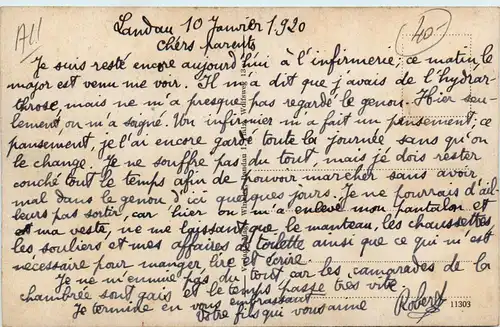 All
40-
Landau 10 Janvier 1920
chers parents
Je suis resté encore aujourd'hui à l'infirmerie, ce matin le
major est venu me voir. Il m'a dit que j'avais de l'hydrar-
throse, mais ne m'a presque pas regardé le genou. Hier seu-
lement, on m'a soigné. Un infirmier m'a fait un pensement; ce
pansement, je l'ai encore gardé toute la journée sans qu'on
le change. Je ne souffre pas du tout, mais je dois rester
couché tout le temps afin de pouvoir marcher sans avoir
mal dans le genou d'ici quelques jours. Je ne pourrais d'ail
leurs pas sortir, car hier on m'a enlevé mon pantalon et
et ma veste, ne me laissant que le manteau, les chaussettes
les souliers et mes affaires de toilette ainsi que ce qui m'est
nécessaire pour manger, lire et écrire.
Je ne m'ennuie pas du tout car les camarades de la
chambrée sont gais et le temps passe très vite.
Je termine en vous embrassant
Votre fils qui vous aime
Robert
11303